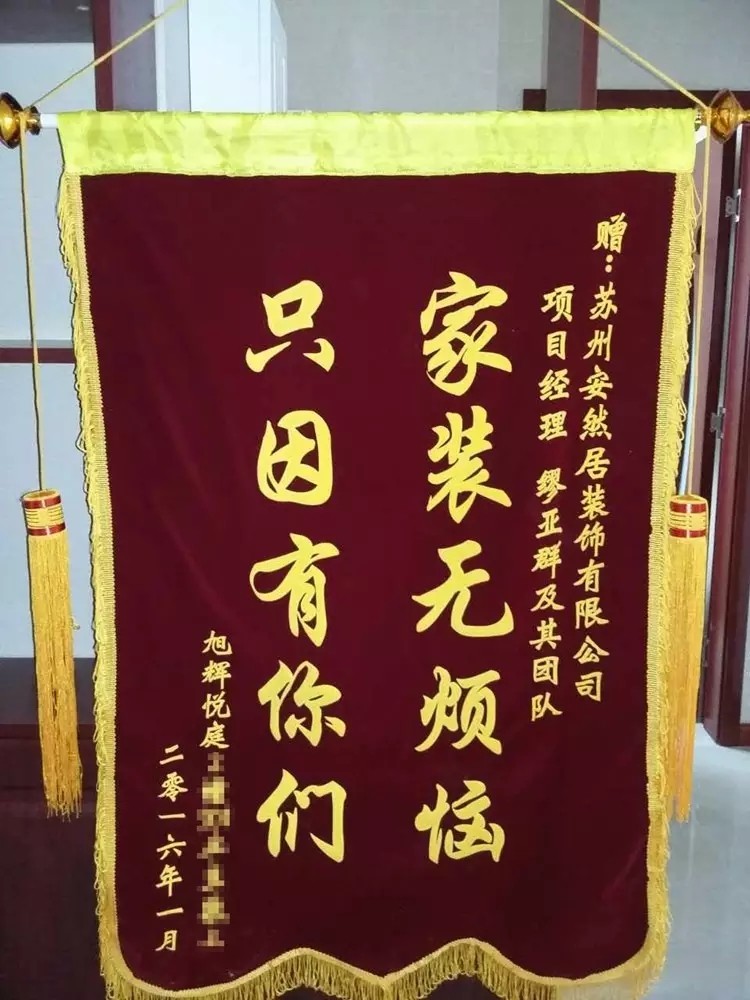 赠：苏州安然居装饰有限公司
项目经理 缪亚群及其团队
家装无烦恼
只因有你们
旭辉悦庭
二零一六年一月